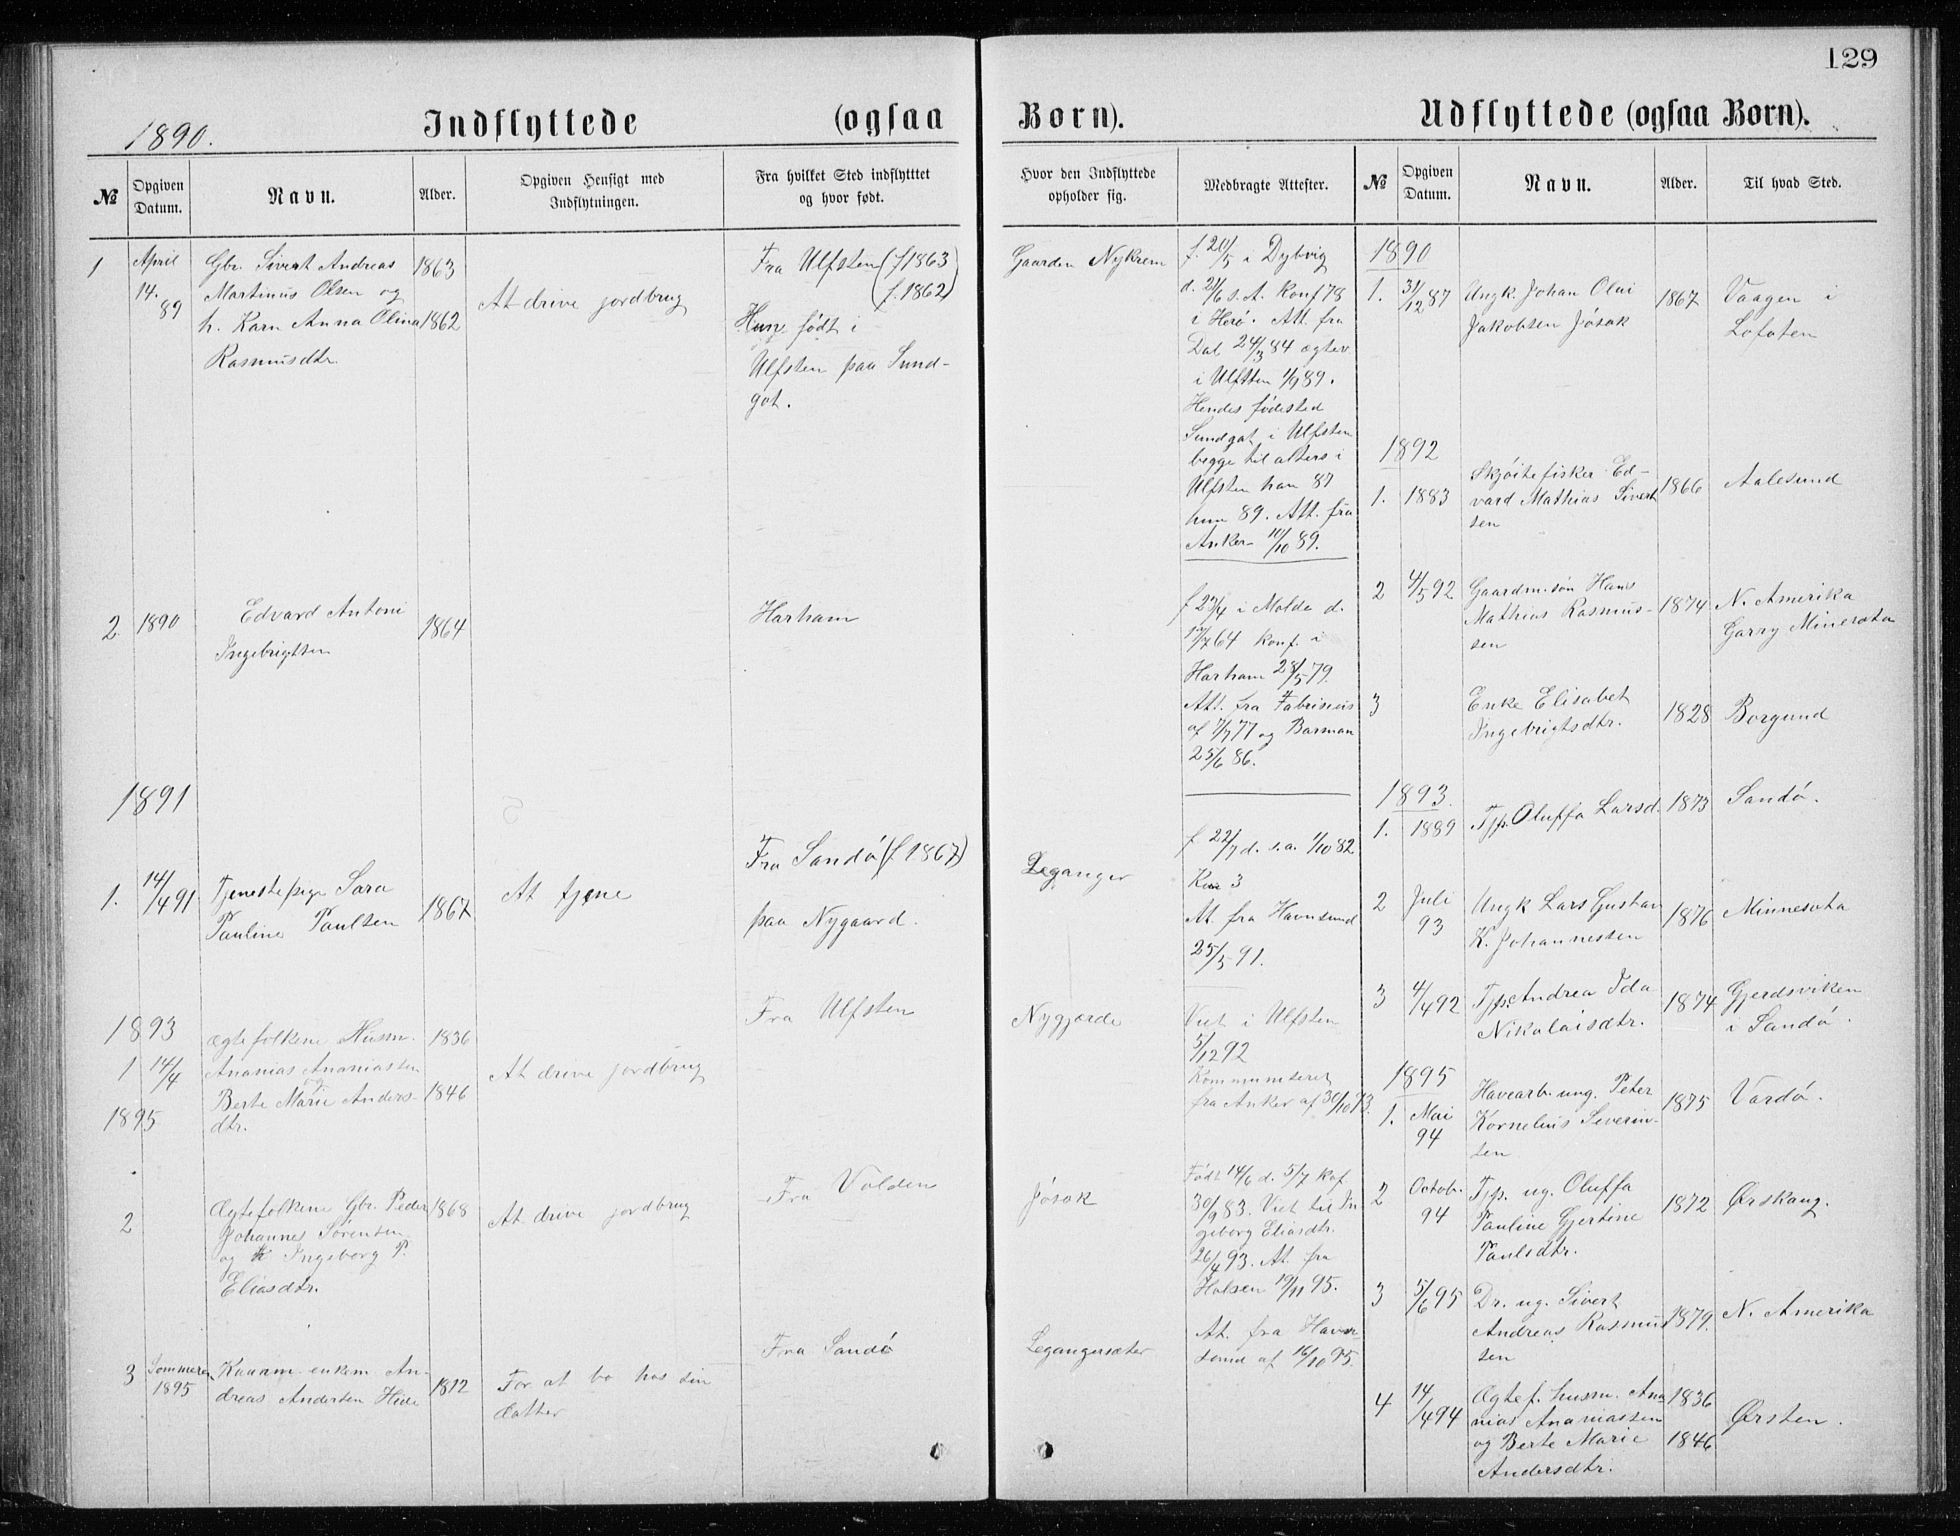 129
1890.
Indflyttede (ogsaa Børn).
Udflyttede (ogsaa Børn).
№
Opgiven Datum.
Navn.
Alder.
Opgiven Hensigt med Indflytningen.
Fra hvilket Sted indflytttet og hvor født.
Hvor den Indflyttede opholder sig.
Medbragte Attester.
№
Opgiven Datum.
Navn.
Alder.
Til hvad Sted.
1
April
14.
89
Gbr. Sivert Andreas
Martinus Olsen og
h. Karn Anna Olina
Rasmusdtr.
1863
1862
At drive jordbrug
Fra Ulfsten (f 1863
f. 1862)
Hun født i
Ulfsten paa Sund-
got.
Gaarden Nykrem
f. 20/5 i Dybvig
d. 21/6 s. A. Konf 78
i Herø. Att. fra
Dal 24/3 84 ægtev
i Ulfsten 1/9 89.
Hendes fødested
Sundgot i Ulfsten
begge til alters i
Ulfsten han 87
hun 89. Att. fra
Anker 10/10 89.
2
1890
Edvard Antoni
Ingebrigtsen
1864
Harham
f 23/4 i Molde d.
17/7 64 Konf. i
Harham 28/5 79.
Att. fra Fabrisius
af 7/7 77 og Barman
25/6 86.
1891
1.
14/4 91
Tjenestepige Sara
Pauline Paulsen
1867
At tjene
Fra Sandø (f. 1867)
paa Nygaard.
Leganger
f 22/7 d. s. a. 1/10 82
Kar 3
At fra Havnsund
25/5 91.
1893
1
14/4
1895
Ægtefolkene Husm.
Ananias Ananiassen
og
Berte Marie Anders-
dtr.
1836
1846
At drive jordbrug
Fra Ulfsten
Nygjærde
Viet i Ulfsten
5/12 92
Kommuniseret
fra Anker af 30/10 93.
2
Ægtefolkene Gbr. Peder
Johannes Sørensen
og Ingeborg P.
Eliasdtr.
1868
At drive jordbrug
Fra Volden
Jøsok
Født 14/6 d. 5/7 Kof
30/9 83. Viet til In
geborg Eliasdtr.
26/4 93. At. fra
Holsen 19/11 95.
3
Sommeren
1895
Kaarm. enkem. An-
dreas Andersen Hide
1812
For at bo hos sin
datter
Fra Sandø
Legangersæter
At. fra Havn-
sund af 16/10 95.
1890
1.
31/12 87
Ungk. Johan Olai
Jakobsen Jøsok
1867
Vaagen i
Lofoten
1892
1.
1883
Skjøitefisker Ed-
vard Mathias Sivert
sen
1866
Aalesund
2
4/5 92
Gaardm.søn Hans
Mathias Rasmus-
sen
1874
N. Amerika
Garry Minesota
3
Enke Elisabet
Ingebrigtsdtr.
1828
Borgund
1893.
1.
1889
Tjp. Oluffa Larsd.
1873
Sandø.
2
Juli
93
Ungk Lars Gustav
K. Johannesen
1876
Minnesota
3
4/4 92
Tjp. Andrea Ida
Nikolaisdtr.
1874
Gjerdsviken
i Sandø.
1895
1.
Mai
94
Havearb. ung. Peter
Kornelius Severin-
sen
1875
Vardø.
2
Octob.
94
Tjp. ug. Oluffa
Pauline Gjertine
Paulsdtr.
1872
Ørskaug.
3
5/6 95
Dr. ug. Sivert
Andreas Rasmus
sen
1879.
N. Amerika
4
14/4 94
Ægtef. husm. Ana
nias Ananiassen
og Berte Marie
Andersdtr.
1836
1846
Ørsten.